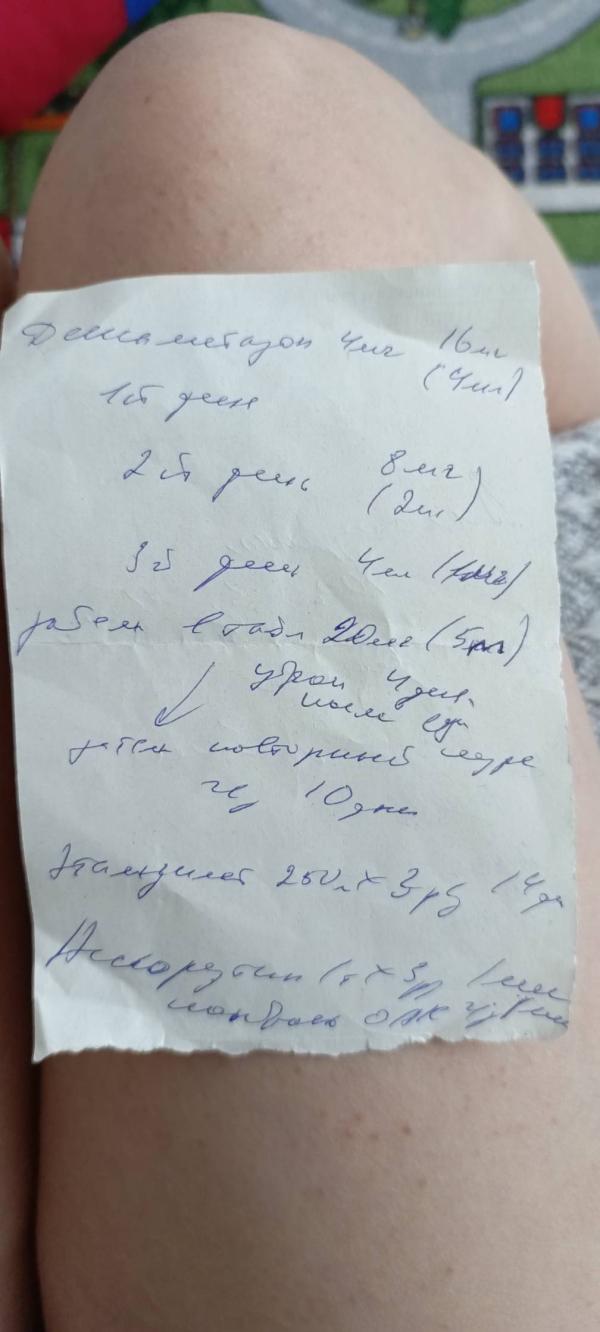 Дексаметазон 4мг 16мг
(4мл)
1й день
2й день 8мг
(2мл)
3й день 4мг
затем в табл 20мг (5т)
утром 4 дня
затем повторный курс
чз 10 дней
Этамзилат 250 х 3 рд 14д
Аскорутин 1т х 3р 1 мес
контроль ОАК чз 1 мес